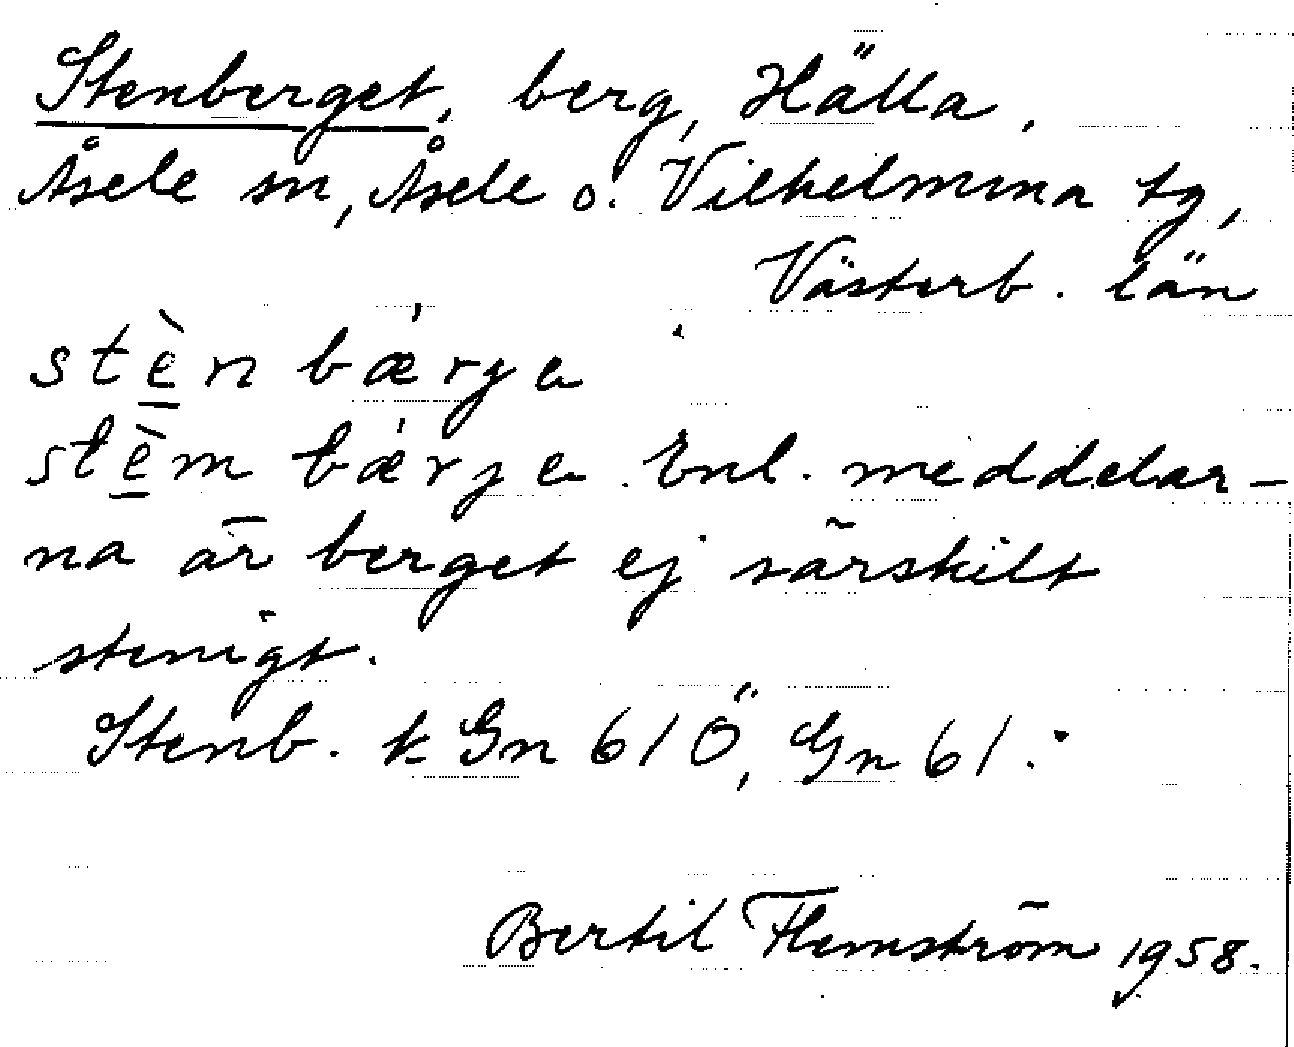 Stenberget, berg, Hälla,
Åsele sn, Åsele o. Vilhelmina tg,
Västerb. län
stèn bæ̀rjɐ
stèm bæ̀rjɐ. Enl. meddelar-
na är berget ej särskilt
stenigt.
Stenb. k Gn 61 Ö, Gn 61.
Bertil Flemström 1958.